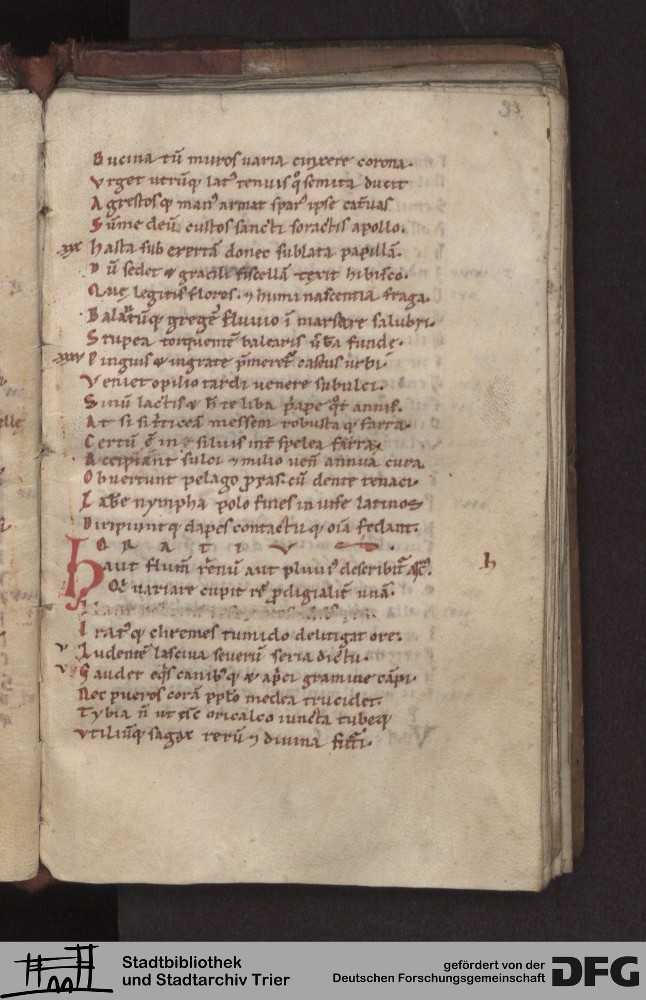 33
Bucina tū muros varia cinxere corona.
Vrget utrūq lat' tenuis qͦ semita ducit
Agrestosq man' armat spar' ipse cat̄uas
Sūme deū custos sancti soractis apollo.
xxx hasta sub exertā donec sublata papillā.
Dū sedet & gracili fiscellā texit hibisco.
Quę legitis flores. & humi nascentia fraga.
Balatūq gregē fluvio ī mersare salubri.
Stupea torquentē balearis ūba funde.
xxxv Pinguis & ingrate p̄meret' caseus urbi
Veniet opilio tardi venere subulci.
Sinū lactis & h̄ te liba p̄ape qͦt annis.
At si t̄ticeā messem robustaq farra.
Certū ē in silvis int̄ spelea
Accipiant sulci & milio ven̄ annua cura
Obvertunt pelago p̄ras. cū dente tenaci
nympha polo fines in latinos
Diripiuntq dapes contactuq oīa fedant.
ORATIVS.
Haut flum̄ r̄enū aut pluvi' describit̄
Qͥ variare cupit rē p̄digialit̄ unā.
h
Irat'q chremes tumido delitigat ore.
v Ludentē lasciva severū seria dictu.
v Gaudet eq͛s canibusq & ap̄ci gramine cāpi.
Nec pueros corā pp̄lo medea trucidet.
Tybia n̄ ut oricalco iuncta tubeq
Vtiliūq sagax rerū & divina
Stadtbibliothek
und Stadtarchiv Trier
gefördert von der
Deutschen Forschungsgemeinschaft
DFG